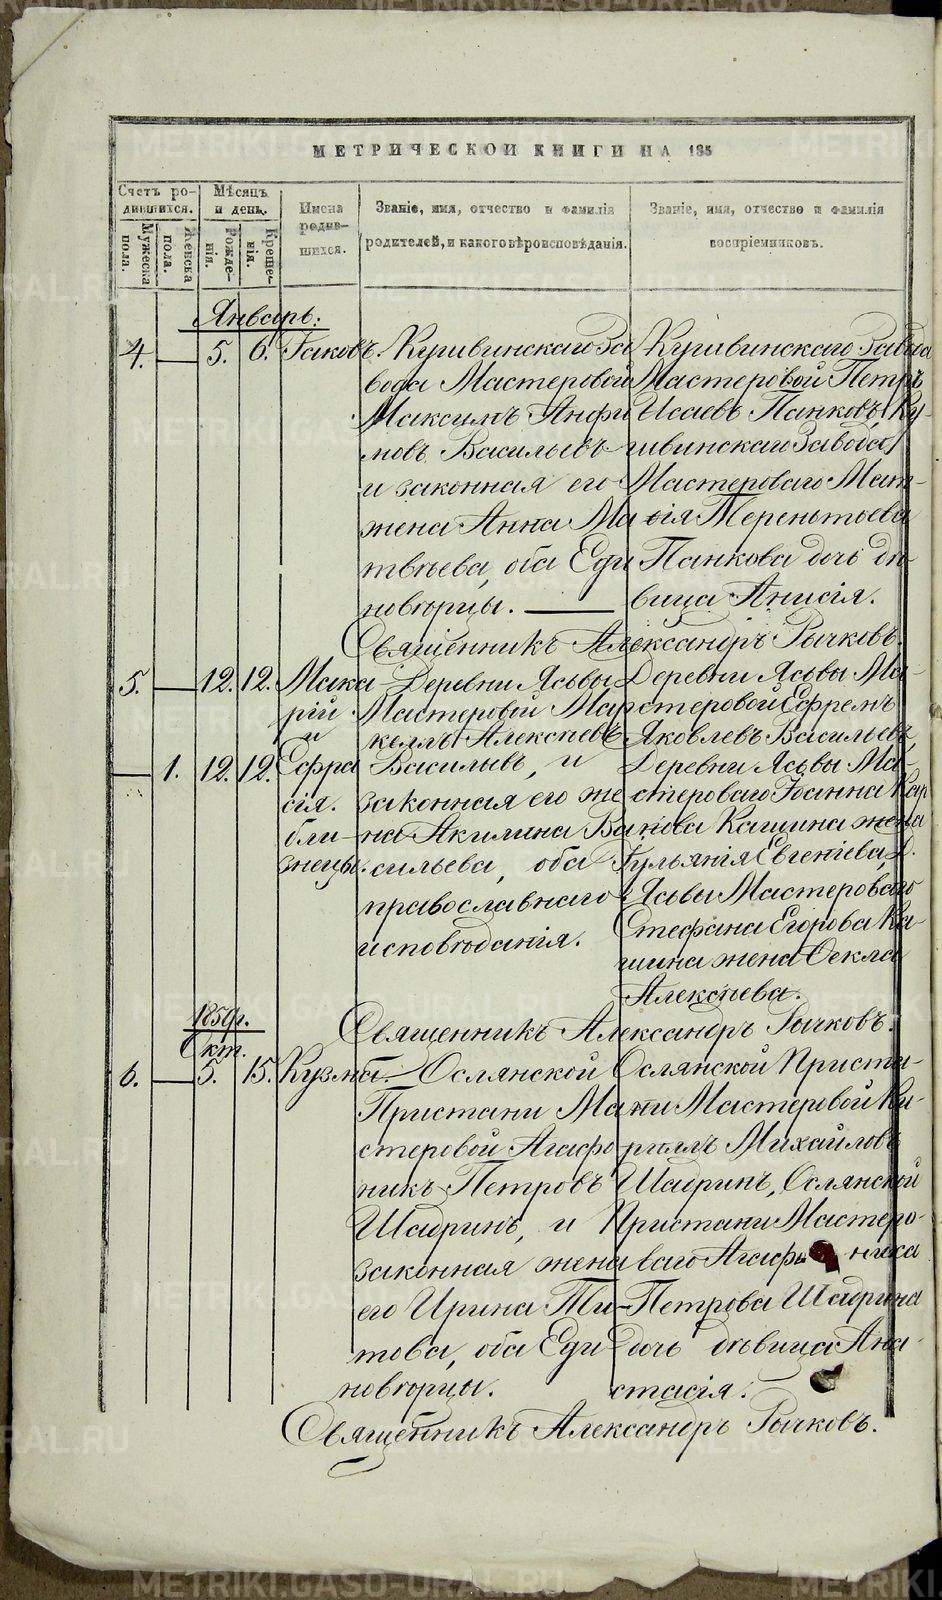 МЕТРИЧЕСКОЙ КНИГИ НА 185
Счетъ ро-
дившихся.
Мужеска
пола.
Женска
пола.
Мѣсяцъ
и день.
Рожде-
нія.
Креще-
нія.
Имена
родив-
шихся.
Званіе, имя, отчество и фамилія
родителей, и какого вѣроисповѣданія.
Званіе, имя, отчество и фамилія
воспріемниковъ.
Январь:
4. — 5. 6. Іаковъ.
Кушвинскаго За
вода Мастеровой
Максимъ Анфи
мовъ Васильевъ
и законная его
жена Анна Ма
твѣева, оба Еди
новѣрцы. —
Кушвинскаго Завода
Мастеровой Петръ
Исаевъ Панковъ, Ку-
швинскаго Завода
Мастероваго Мат-
ѳія Терентьева
Панкова дочь дѣ-
вица Анисія.
Священникъ Александръ Рычковъ.
5. — 12. 12. Мака-
рій
и
— 1. 12. 12. Ефра
сія.
бли-
знецы.
Деревни Ясьвы
Мастеровой Мар
келлъ Алексѣевъ
Васильевъ, и
законная его же
на Акилина Ва
сильева, оба
православнаго
исповѣданія.
Деревни Ясьвы Ма-
стеровой Ефремъ
Яковлевъ Васильевъ,
Деревни Ясьвы Ма-
стероваго Іоанна Кар
пова Кашина жена
Іульянія Евгеніева, Д.
Ясьвы Мастероваго
Стефана Егорова Ка-
шина жена Ѳекла
Алексѣева.
Священникъ Александръ Рычковъ.
1859г.
Окт.
6. — 5. 15. Кузьма.
Ослянской
Пристани Ма
стеровой Агафо
никъ Петровъ
Шадринъ, и
законная жена
его Ирина Ти-
това, оба Еди
новѣрцы.
Ослянской Приста-
ни Мастеровой Ки-
риллъ Михайловъ
Шадринъ, Ослянской
Пристани Мастеро-
ваго Агафоника
Петрова Шадрина
дочь дѣвица Ана-
стасія.
Священникъ Александръ Рычковъ.
METRIKI.GASO-URAL.RU